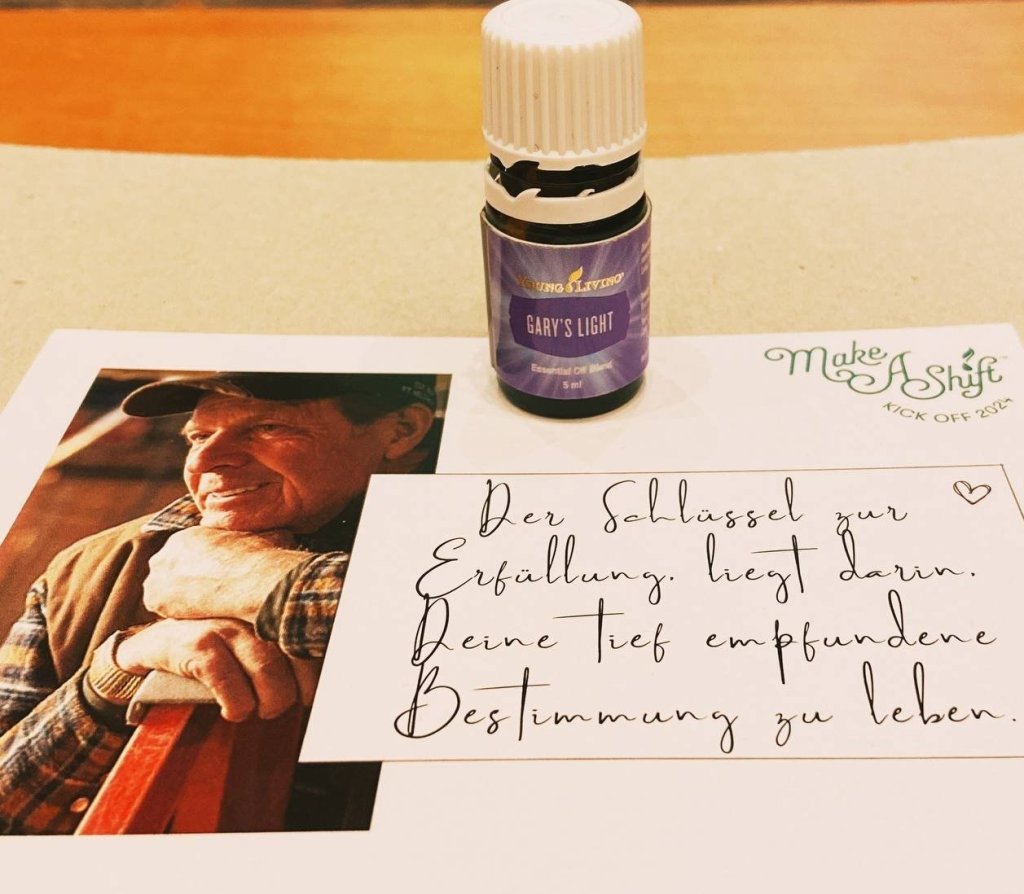 YOUNG LIVING
GARY'S LIGHT
Essential Oil Blend
5 ml
Make A Shift™
KICK OFF 2024
Der Schlüssel zur
Erfüllung. liegt darin.
Deine tief empfundene
Bestimmung zu leben.